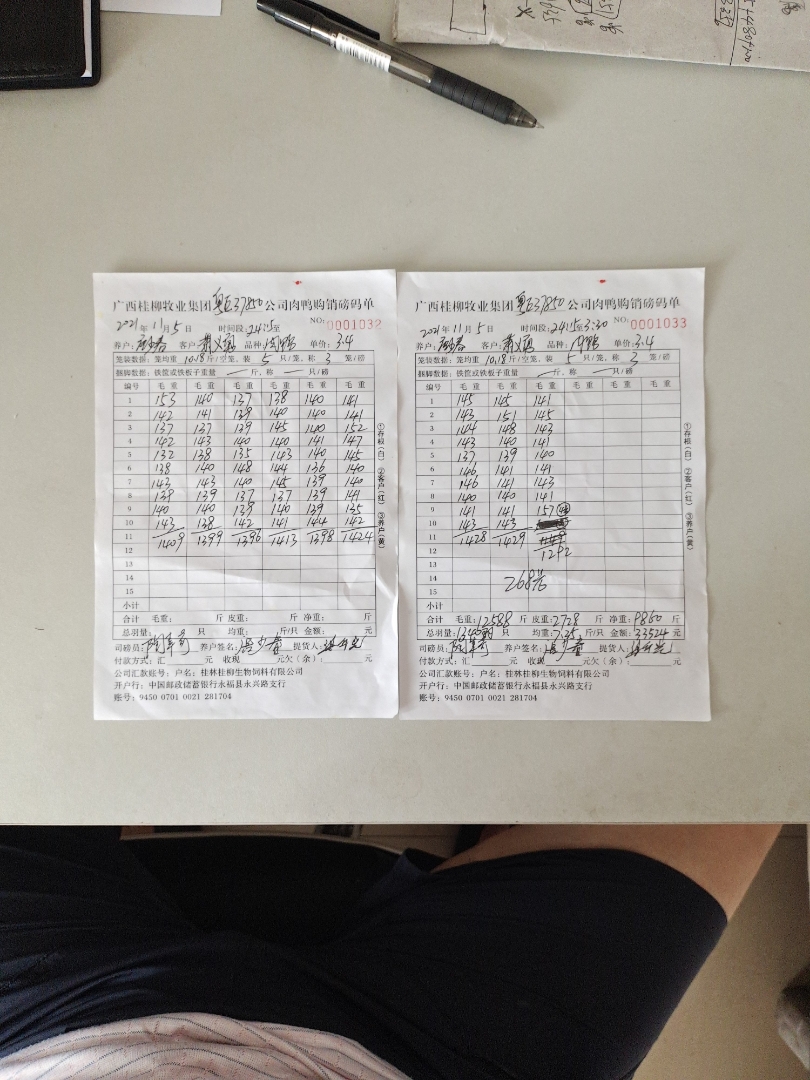 广西桂柳牧业集团粤E37850公司肉鸭购销磅码单
2021年11月5日 时间段:24:15至
NO: 0001032
养户: 客户: 品种: 单价:3.4
笼装数据:笼均重10.18斤/空笼,装5只/笼,称3笼/磅
捆脚数据:铁筐或铁板子重量一斤,称一只/磅
编号 毛重 毛重 毛重 毛重 毛重 毛重
1 153 140 137 138 140 141
2 142 141 139 140 140 141
3 137 137 139 145 140 152
4 142 143 140 140 141 147
5 132 138 135 143 140 145
6 138 140 148 144 136 140
7 143 143 140 145 139 140
8 139 139 137 137 139 141
9 140 140 139 140 139 135
10 143 138 142 141 144 142
11 1409 1399 1396 1413 1398 1424
12
13
14
15
小计
合计 毛重: 斤 皮重: 斤 净重: 斤
总羽量: 只 均重: 斤/只 金额: 元
司磅员: 养户签名: 提货人:
付款方式:汇 元 收现 元欠(余): 元
公司汇款账号:户名:桂林桂柳生物饲料有限公司
开户行:中国邮政储蓄银行永福县永兴路支行
账号:9450 0701 0021 281704
①存根(白) ②客户(红) ③养户(黄)
广西桂柳牧业集团粤E37850公司肉鸭购销磅码单
2021年11月5日 时间段:24:15至3:30
NO: 0001033
养户: 客户: 品种: 单价:3.4
笼装数据:笼均重10.18斤/空笼,装5只/笼,称3笼/磅
捆脚数据:铁筐或铁板子重量一斤,称一只/磅
编号 毛重 毛重 毛重 毛重 毛重 毛重
1 145 145 141
2 143 151 145
3 144 148 143
4 143 140 141
5 137 139 140
6 146 141 141
7 146 141 143
8 140 140 141
9 141 141 157
10 143 143
11 1428 1429
12 1292
13
14 268
15
小计
合计 毛重:12588斤 皮重:2728斤 净重:9860斤
总羽量:1340只 均重:7.35斤/只 金额:33524元
司磅员: 养户签名: 提货人:
付款方式:汇 元 收现 元欠(余): 元
公司汇款账号:户名:桂林桂柳生物饲料有限公司
开户行:中国邮政储蓄银行永福县永兴路支行
账号:9450 0701 0021 281704
①存根(白) ②客户(红) ③养户(黄)